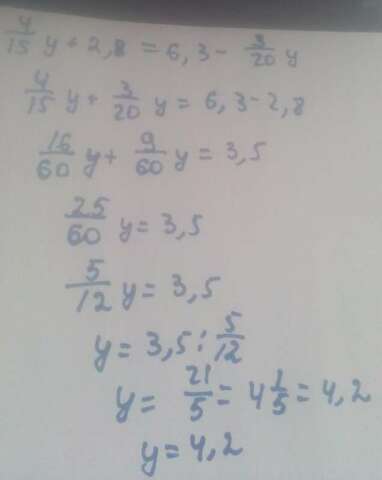 4/15 y + 2,8 = 6,3 - 3/20 y
4/15 y + 3/20 y = 6,3 - 2,8
16/60 y + 9/60 y = 3,5
25/60 y = 3,5
5/12 y = 3,5
y = 3,5 : 5/12
y = 21/5 = 4 1/5 = 4,2
y = 4,2